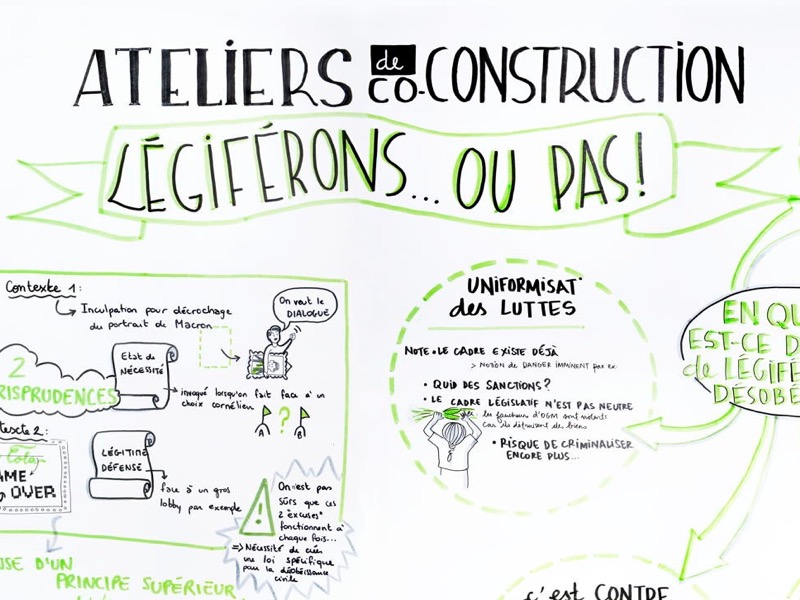 ATELIERS de CO-CONSTRUCTION
LÉGIFÉRONS... OU PAS!
Contexte 1:
Inculpation pour décrochage
du portrait de Macron
On veut le
DIALOGUE
2
RISPRUDENCES
Etat de
NÉCESSITÉ
invoqué lorsqu'on fait face à un
choix cornélien
A
?
B
texte 2:
OVER
LÉGITIME
DÉFENSE
face à un gros
lobby par exemple
!
On n'est pas
sûrs que ces
2 "excuses"
fonctionnent à
chaque fois...
=> Nécessité de créer
une loi spécifique
pour la désobéissance
civile
D'UN
PRINCIPE SUPÉRIEUR
UNIFORMISAT°
des LUTTES
NOTE • LE CADRE EXISTE DÉJÀ
> NOTION DE DANGER IMMINENT par ex
• QUID DES SANCTIONS?
• LE CADRE LÉGISLATIF N'EST PAS NEUTRE
les faucheurs d'OGM sont violents
car ils détruisent des biens
• RISQUE DE CRIMINALISER
ENCORE PLUS...
EN QU
EST-CE D
de LÉGIFÉ
DÉSOBÉ
C'est CONTRE